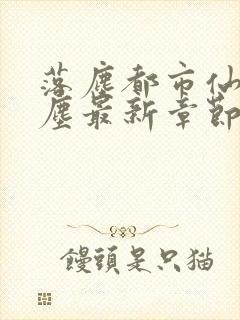 落塵都市仙
塵最新章節
饅頭是只猫